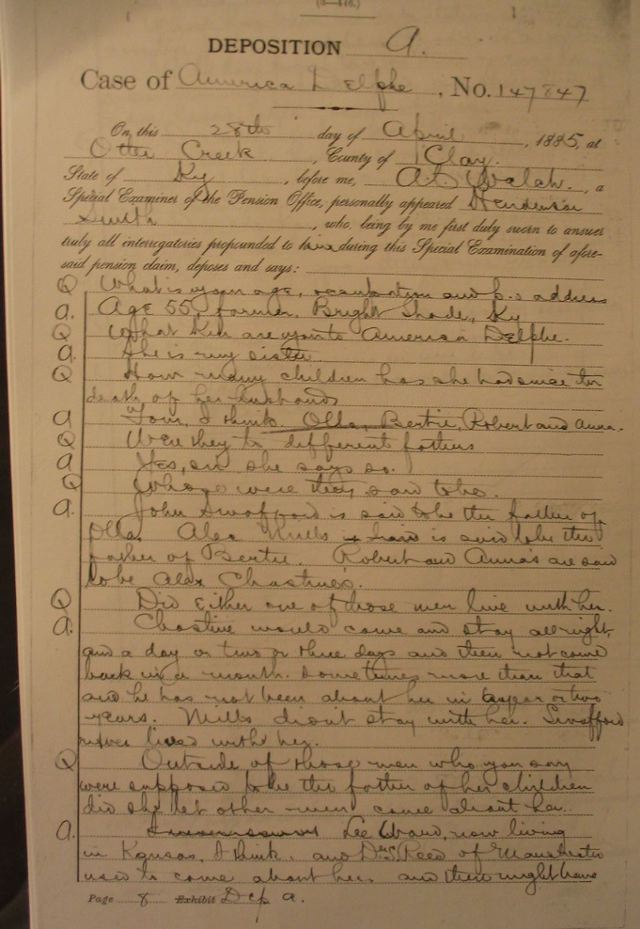 DEPOSITION A.
Case of America Delphe, No. 147847
On this 28th day of April, 1885, at
Otter Creek, County of Clay,
State of Ky, before me, Welch, a
Special Examiner of the Pension Office, personally appeared Henderson
Smith, who, being by me first duly sworn to answer
truly all interrogatories propounded to him during this Special Examination of afore-
said pension claim, deposes and says:
Q What is your age, occupation and P.O. address
a. Age 55, farmer, Bright Shade, Ky
Q What kin are you to American Delphe.
a. She is my sister
Q How many children has she had since the
death of her husband
a Four, I think. Olla, Bertie, Robert and Anna.
Q Were they by different fathers
a Yes, sir she says so.
Q Whose were they said to be.
a. John Swafford is said to be the father of
Olla. Alex Mills is said to be the
father of Bertie. Robert and Anna's are said
to be Alex Chastines.
Q Did either one of those men live with her.
a. Chastine would come and stay all night
and a day or two or three days and then not come
back in a month. Sometimes more than that
and he has not been about her in a year or two
years. Mills didn't stay with her. Swafford
never lived with her.
Q Outside of those men who you say
were supposed to be the father of her children
did she let other men come about her.
a. Lee Ward, now living
in Kansas, I think, and Reed of Manchester
used to come about her and there might have
Page 8 Exhibit Dep a.